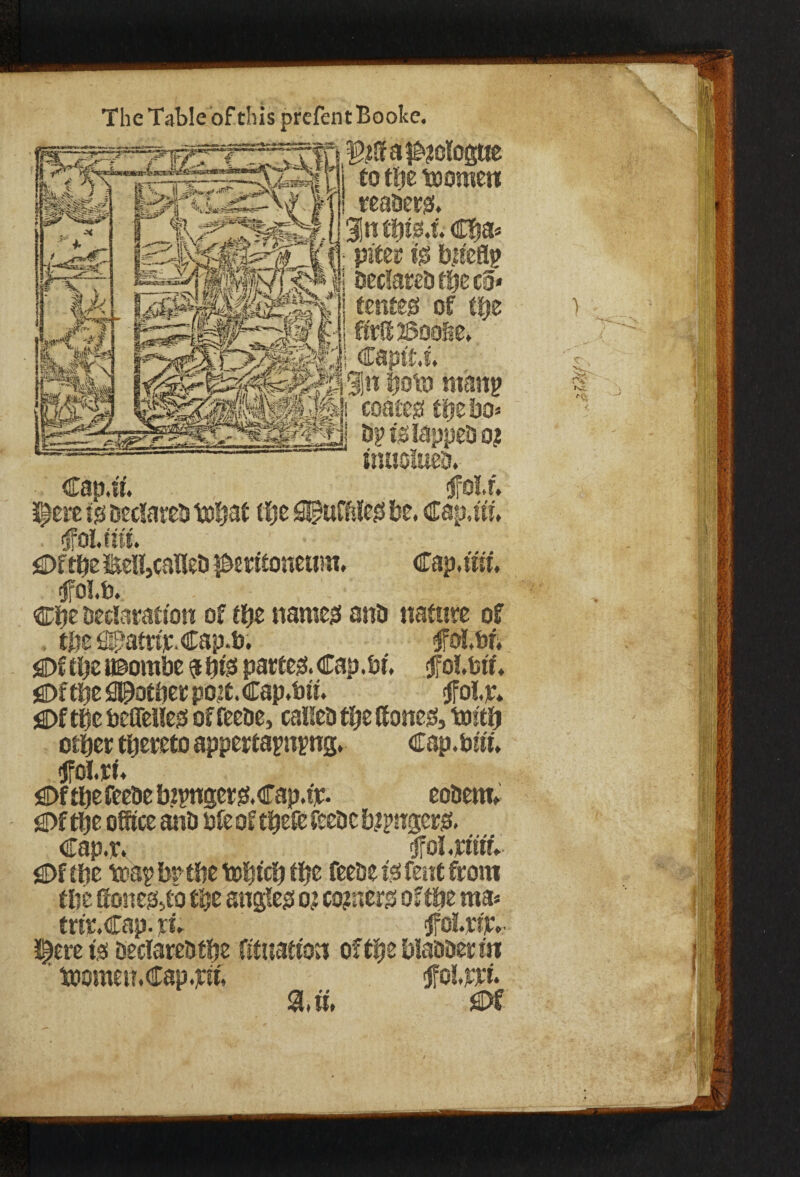 The Table of this present Booke.
Yrst a Prologue
to the women
readers.
In this.i. Cha-
piter is briefly
declared the cō-
tentes of the
first Booke.
Capit.i.
In how many
coates the bo-
dy is lapped or
inuolued.
Cap.ii. Fol.i.
Here is declared what the Muskles be. Cap.iii.
Fol.iiii.
Of the kell, called Peritoneum. Cap.iiii.
Fol.v.
The declaration of the names and nature of
the Matrix. Cap.v. Fol.vi.
Of the wombe & his partes. Cap.vi. Fol.vii.
Of the Mother port. Cap.vii. Fol.x.
Of the vesselles of seede, called the stones, with
other thereto appertaynyng. Cap.viii.
Fol.xi.
Of the seede bryngers. Cap.ix. eodem.
Of the office and vse of these seede bryngers.
Cap.x. Fol.xiiii.
Of the way by the which the seede is sent from
the stones, to the angles or corners of the ma-
trix. Cap.xi. Fol.xix.
Here is declared the situation of the bladder in
women. Cap.xii. Fol.xxi.
A.ii. Of